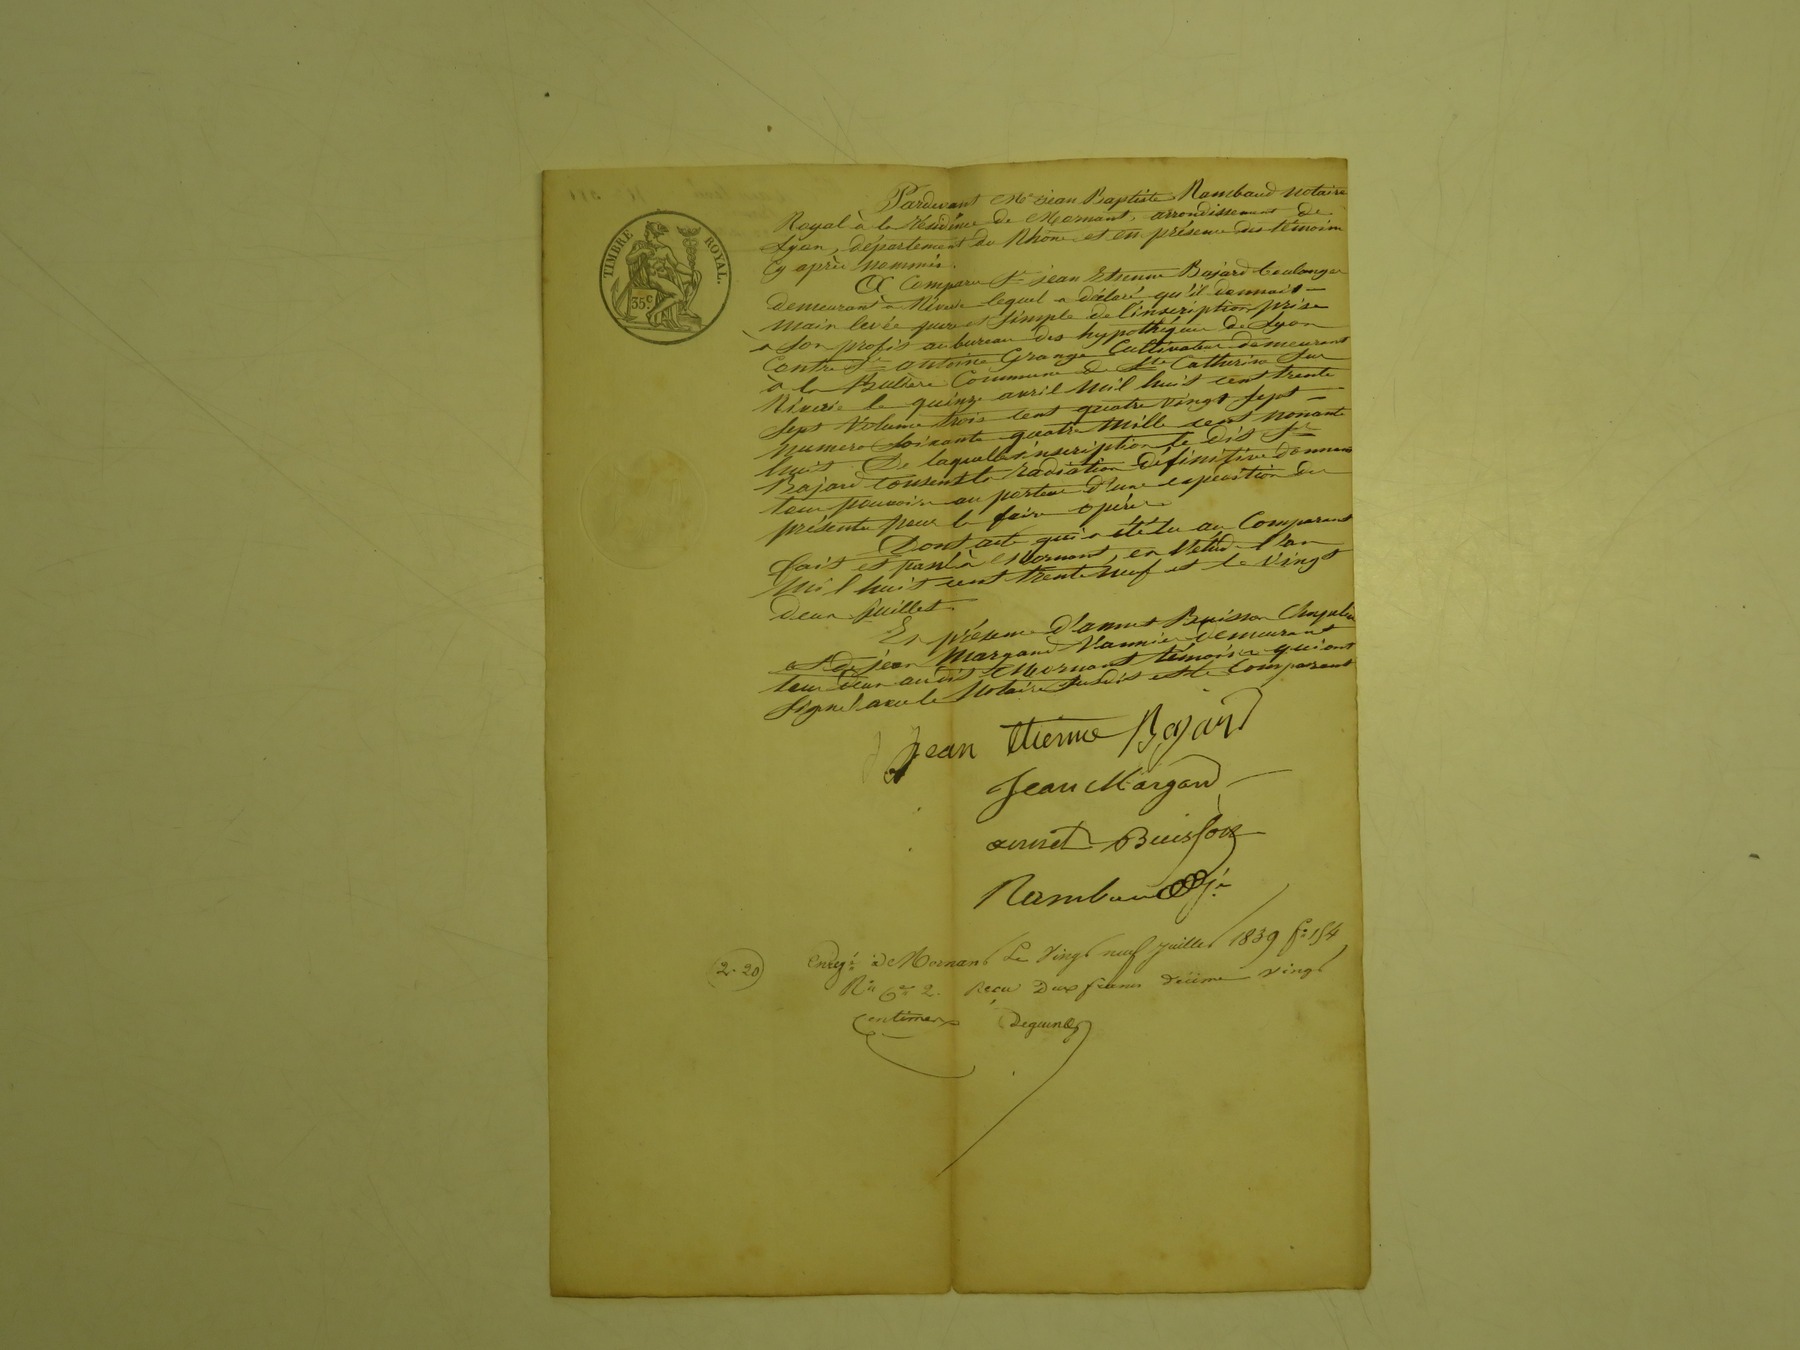 TIMBRE ROYAL.
35 c.
Pardevant Me jean Baptiste Rambaud notaire
Royal à la Résidence de Mornant, arrondissement de
Lyon, département du Rhône et en présence des témoins
Cy après nommés.
A Comparu Sr jean Etienne Bajard boulanger
demeurant à Riverie lequel a déclaré qu'il donnait
main levée pure et simple de l'inscription prise
à son profit au bureau des hypothèques de Lyon
Contre Sr antoine Grange Cultivateur demeurant
à la Commune de Ste Catherine sur
Riverie le quinze avril mil huit cent trente
sept Volume trois cent quatre vingt sept
numero soixante quatre mille cent nonante
huit De laquelle inscription le dit Sr
Bajard consent la radiation définitive donnant
tout pouvoir au porteur d'une expedition des
présentes pour la faire opérer
Dont acte qui a été lu au Comparant
fait et passé à Mornant, en l'étude l'an
mil huit cent trente neuf et le vingt
deux juillet
En présence d'annet Buisson
et de jean Margand demeurant
tous deux au dit Mornant témoins qui ont
signé avec le Notaire susdit et le Comparant
Jean Etienne Bajard
Jean Margand
annet Buisson
Rambaud
2.20
Enregé à Mornant Le Vingt neuf juillet 1839 fo 154
Ro Ce 2. Reçu Deux francs décime vingt
Centimes